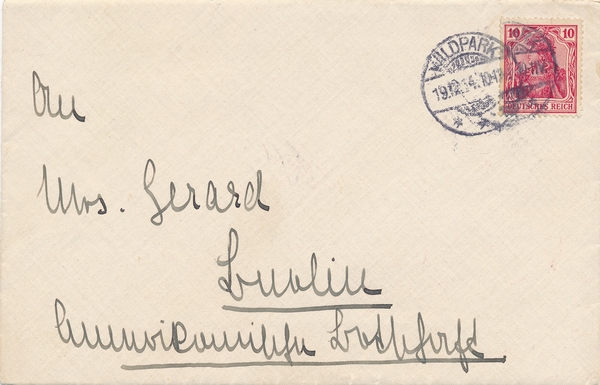 WALDPARK
19.12.14.10-11V.
10 10
DEUTSCHES REICH
An
Mrs. Gerard
Berlin
Amerikanische Botschaft